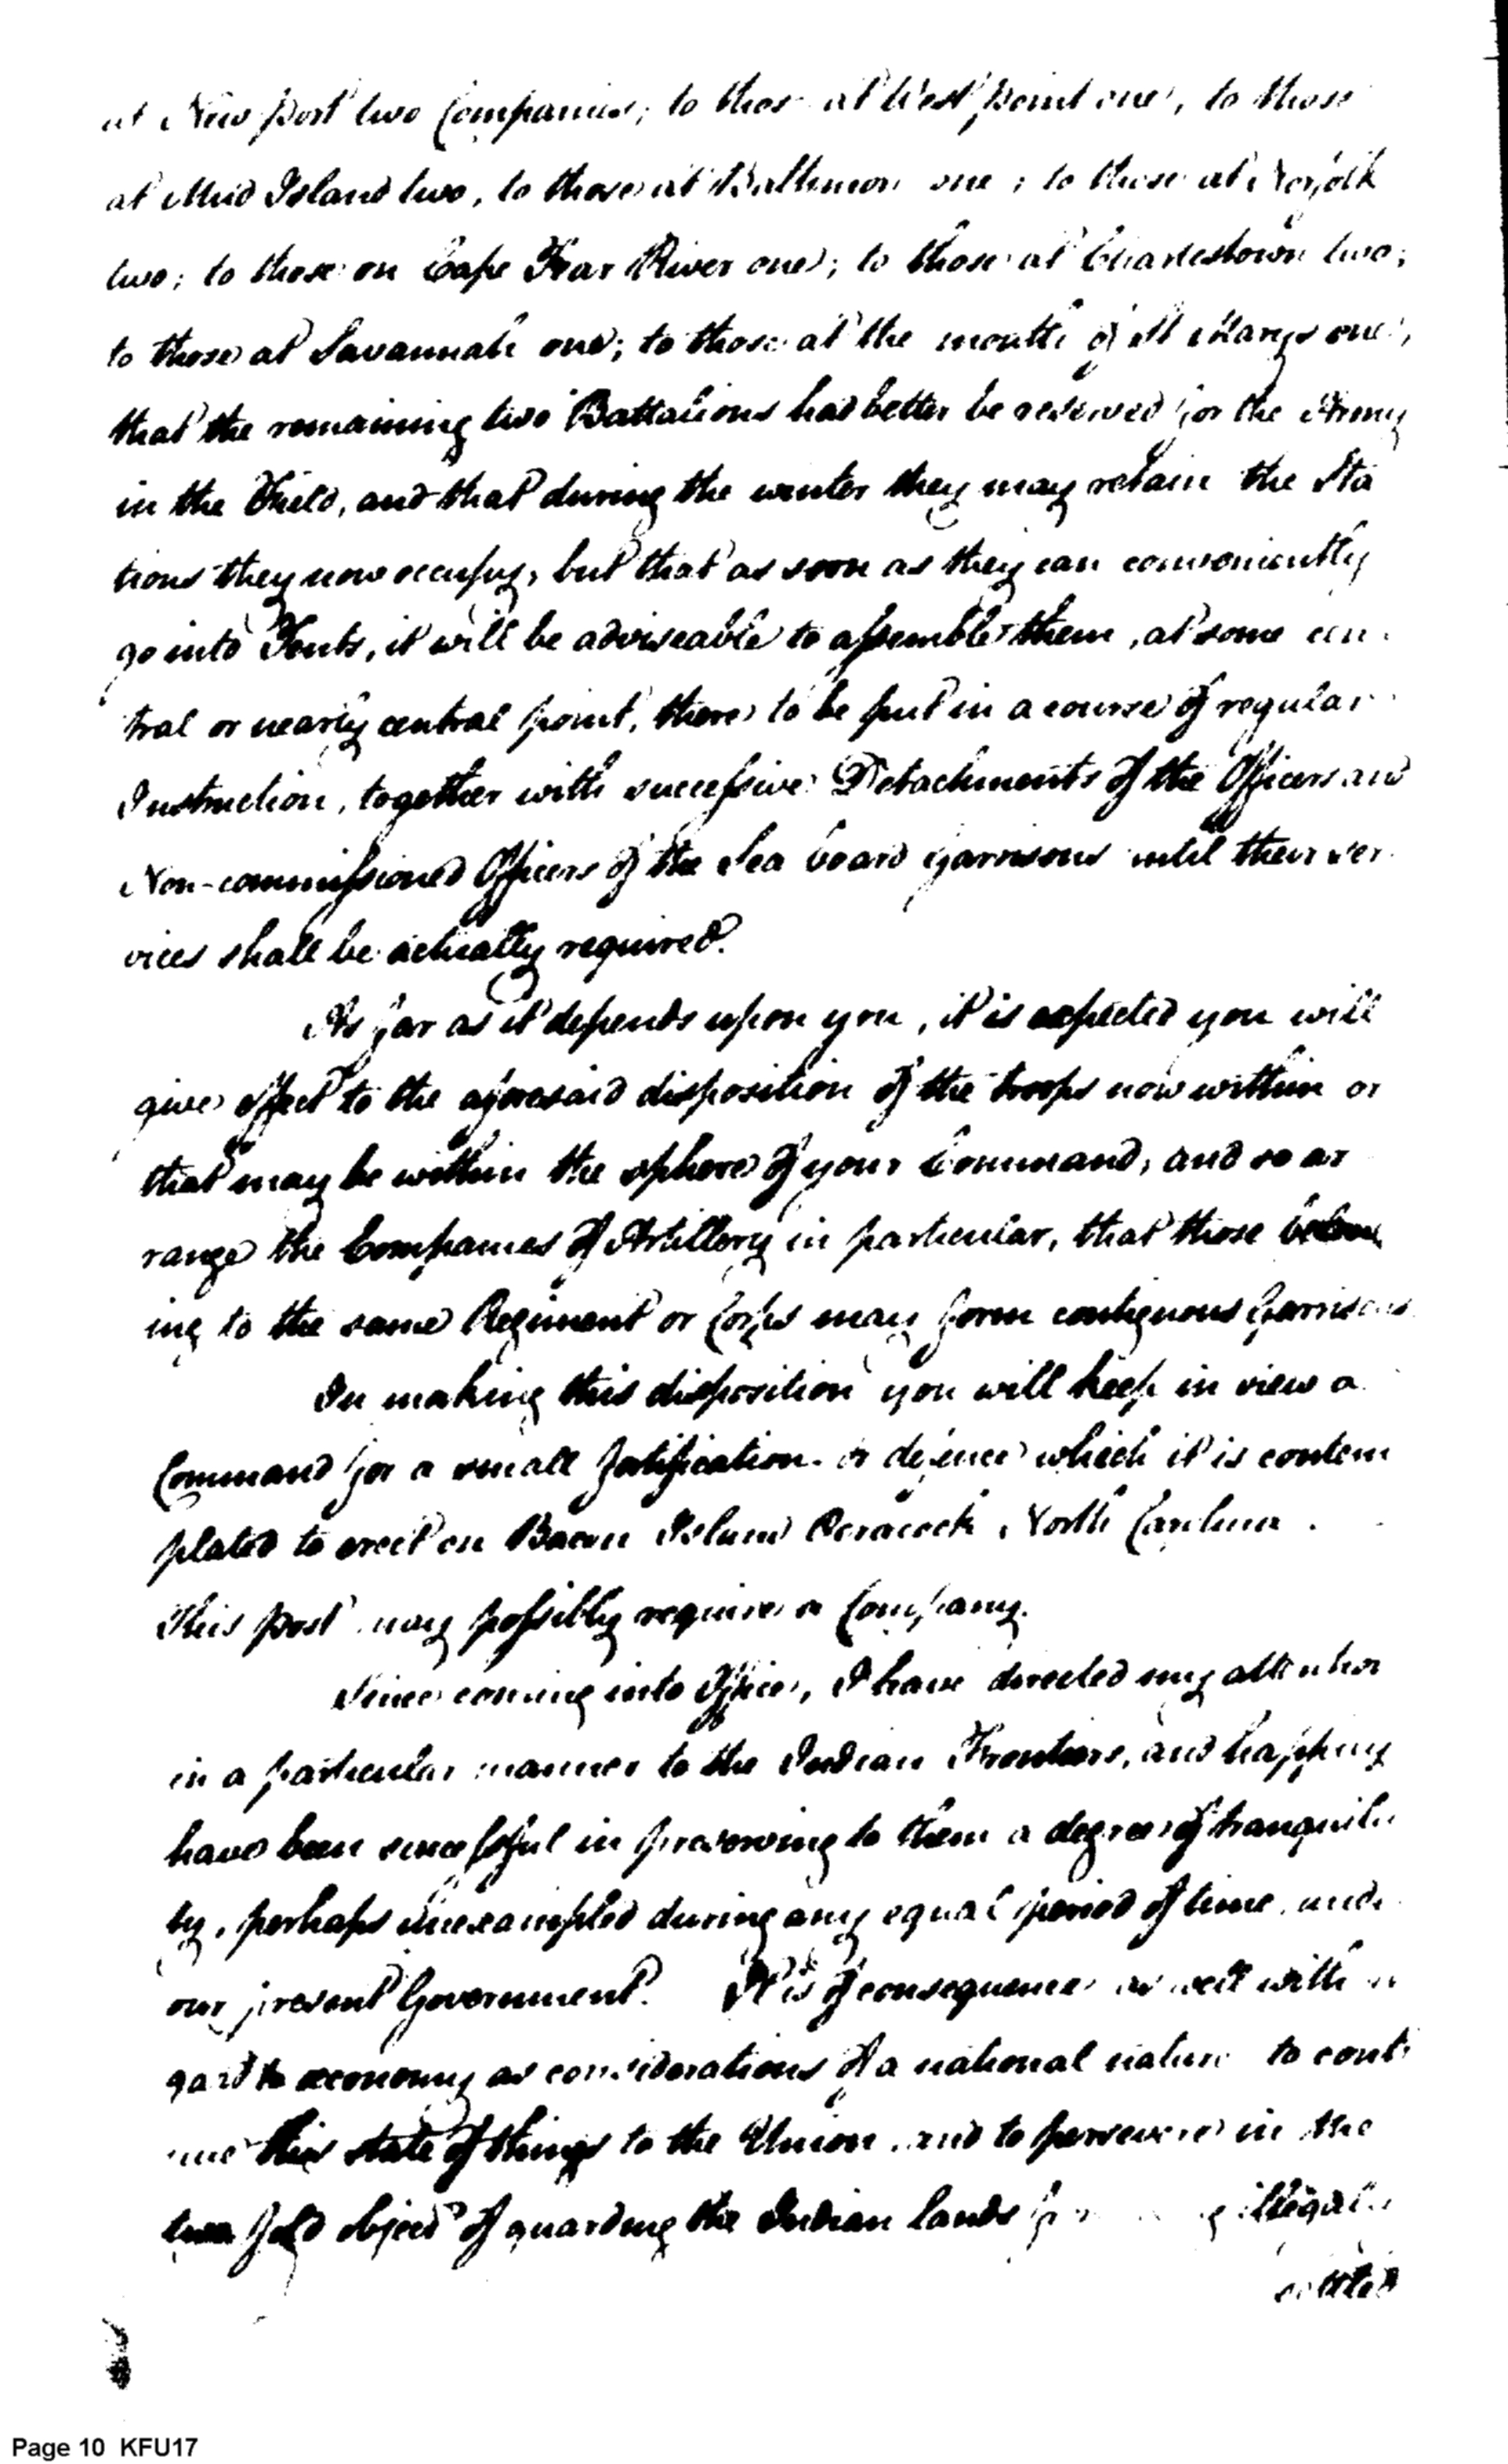 at New port two Companies; to those at West point one, to those
at Mud Island two, to those at Baltimore one; to those at Norfolk
two; to those on Cape Fear River one; to those at Charlestown two;
to those at Savannah one; to those at the mouth of St Marys one,
that the remaining two Battalions had better be reserved for the Army
in the Field, and that during the winter they may retain the Sta
tions they now occupy, but that as soon as they can conveniently
go into Tents, it will be adviseable to assemble them, at some cen
tral or nearly central point, there to be put in a course of regular
Instruction, together with successive Detachments of the Officers and
Non-commissioned Officers of the Sea board garrisons until their ser
vices shall be actually required.
As far as it depends upon you, it is expected you will
give effect to the aforesaid disposition of the troops now within or
that may be within the sphere of your Command, and so ar
range the Companies of Artillery in particular, that those belong
ing to the same Regiment or Corps may form contiguous Garrisons
In making this disposition you will keep in view a
Command for a small fortification or defence which it is contem
plated to erect on Bacon Island Ocracock North Carolina.
This post may possibly require a Company.
Since coming into Office, I have directed my attention
in a particular manner to the Indian Frontiers, and happily
have been successful in preserving to them a degree of tranquili
ty, perhaps unexampled during any equal period of time, under
our present Government. It is of consequence as well with re
gard to œconomy as considerations of a national nature to conti
nue this state of things to the Union, and to persevere in the
two fold object of guarding the Indian lands illegal
settled
Page 10 KFU17